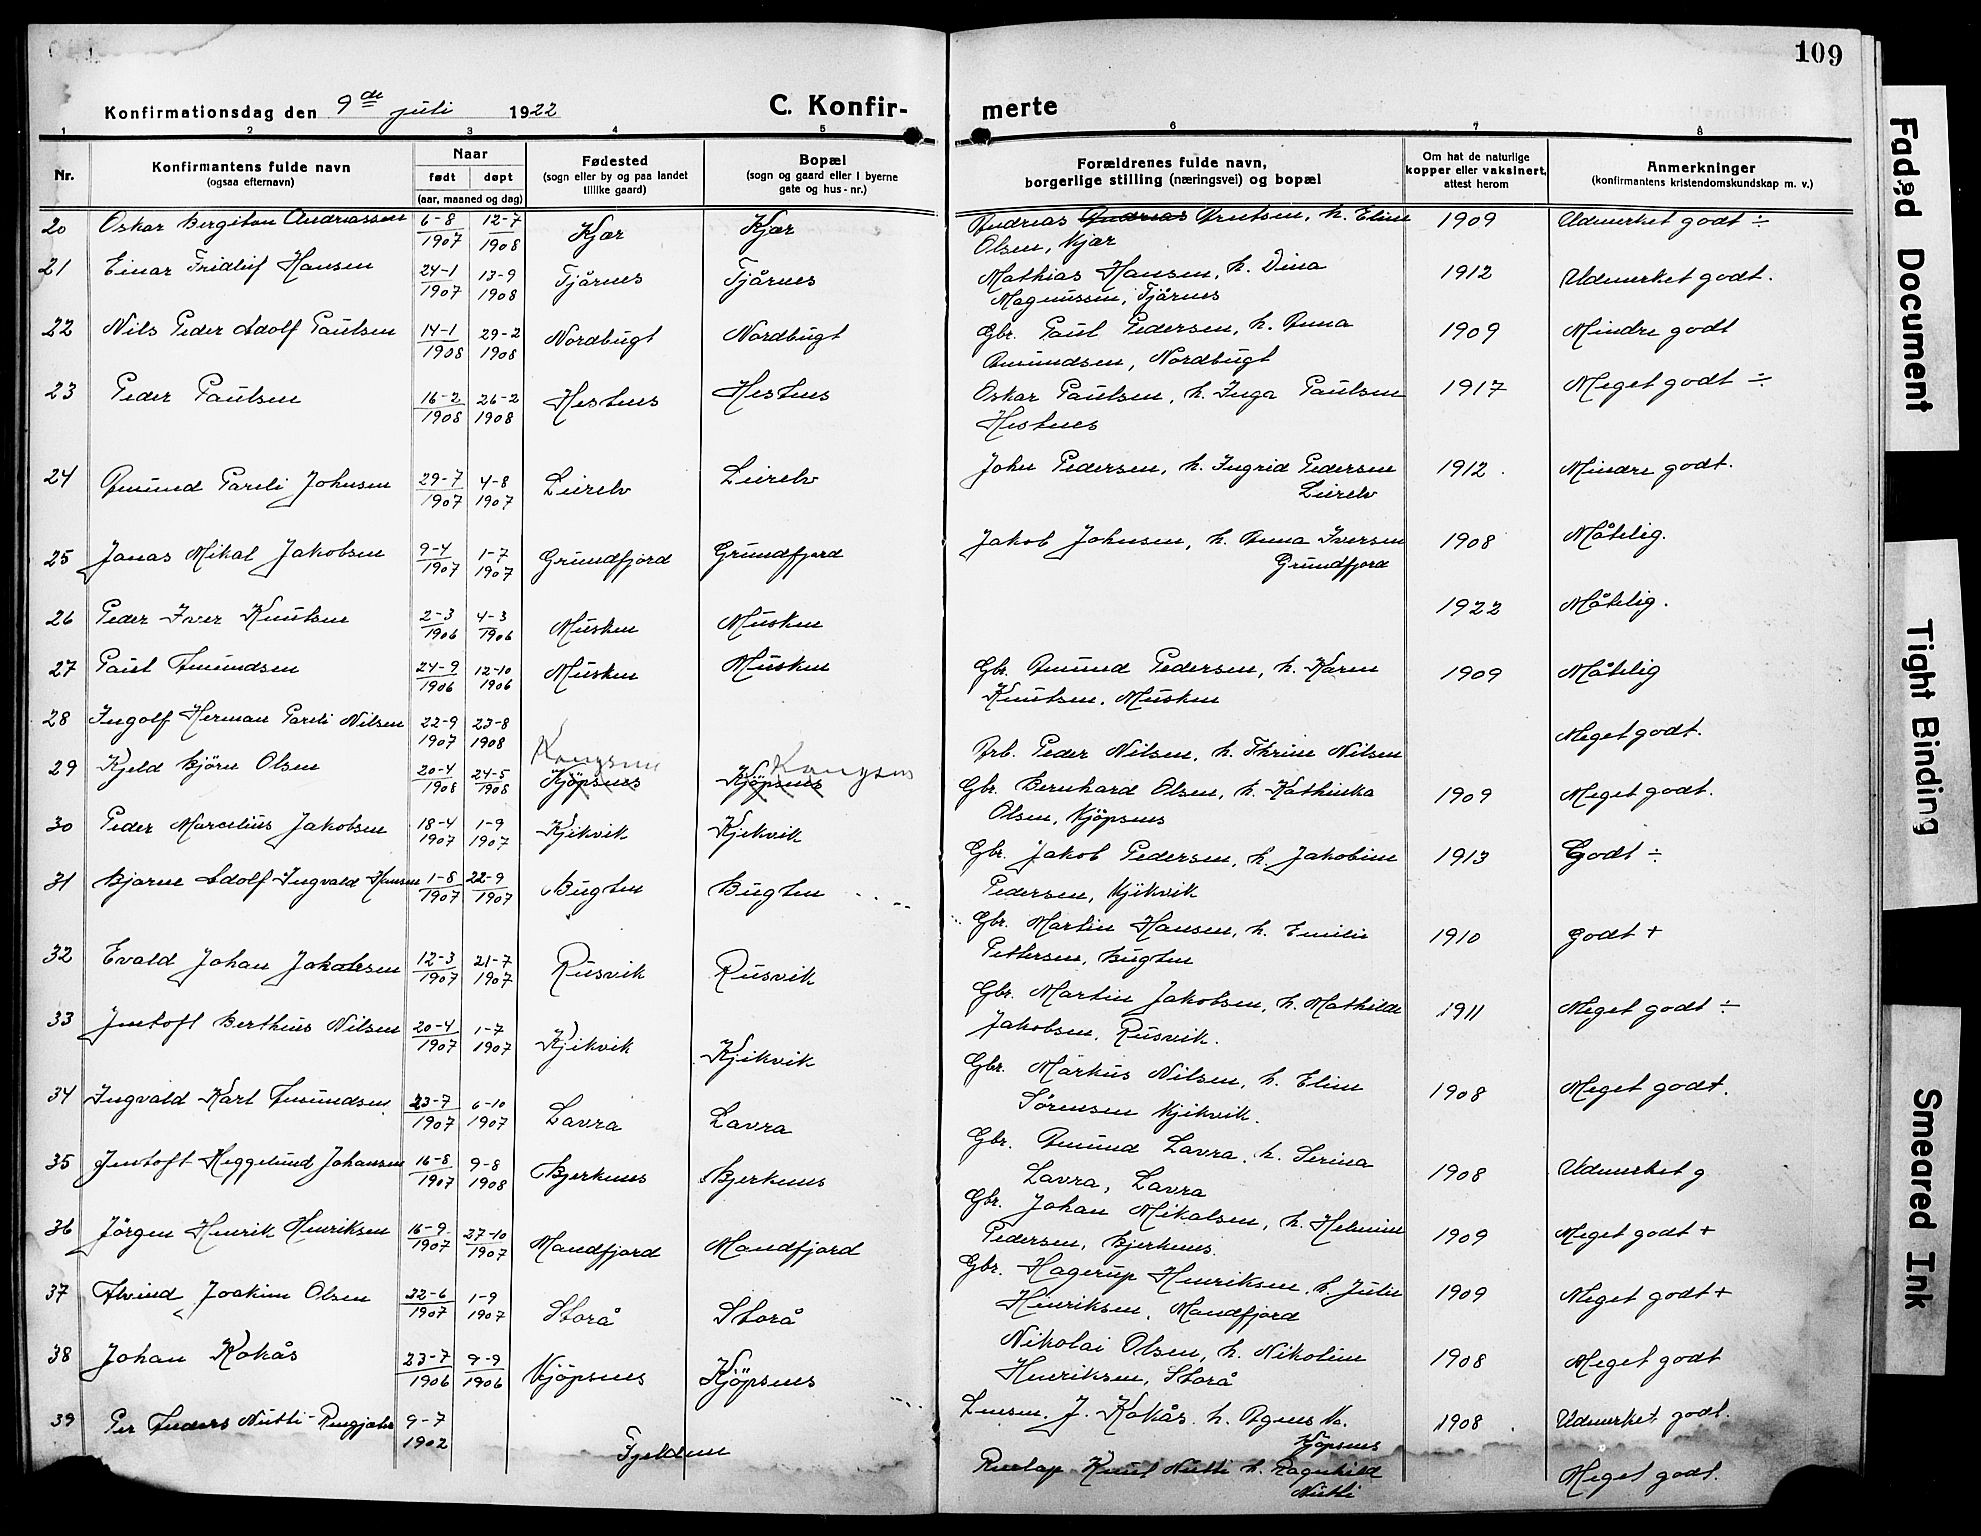 109
Konfirmationsdag den 9de juli 1922
C. Konfir- merte
1 2 3 4 5 6 7 8
Nr.
Konfirmantens fulde navn
(ogsaa efternavn)
Naar
født døpt
(aar, maaned og dag)
Fødested
(sogn eller by og paa landet
tillike gaard)
Bopæl
(sogn og gaard eller i byerne
gate og hus-nr.)
Forældrenes fulde navn,
borgerlige stilling (næringsvei) og bopæl
Om hat de naturlige
kopper eller vaksinert,
attest herom
Anmerkninger
(konfirmantens kristendomskundskap m. v.)
20 Oskar Bergiton Andreassen 6-8 1907 12-7 1908 Kjær Kjær Andreas Andreas Knutsen, h. Eline 1909 Udmerket godt ÷
Olsen, Kjær
21 Einar Fridtjif Hansen 24-1 1907 13-9 1908 Tjårnes Tjårnes Mathias Hansen, h. Dina 1912 Udmerket godt.
Magnussen, Tjårnes
22 Nils Peder Adolf Paulsen 14-1 1908 29-2 1908 Nordbugt Nordbugt Gbr. Paul Pedersen, h. Anna 1909 Mindre godt
Amundsen, Nordbugt
23 Peder Paulsen 16-2 1908 26-2 1908 Hestnes Hestnes Oskar Paulsen, h. Inga Paulsen 1917 Meget godt ÷
Hestnes
24 Amund Pareli Johnsen 29-7 1907 4-8 1907 Leirelv Leirelv John Pedersen, h. Ingrid Pedersen 1912. Mindre godt.
Leirelv
25 Jonas Mikal Jakobsen 9-4 1907 1-7 1907 Grundfjord Grundfjord Jakob Johnsen, h. Anna Iversen 1908 Måtelig.
Grundfjord
26 Peder Iver Knutsen 2-3 1906 4-3 1906 Musken Musken 1922 Måtelig.
27 Paul Amundsen 24-9 1906 12-10 1906 Musken Musken Gbr. Amund Pedersen, h. Karen 1909 Måtelig
Knutsen. Musken
28 Ingolf Herman Pareli Nilsen 22-9 1907 23-8 1908 Arb. Peder Nilsen, h. Thrine Nilsen Meget godt.
29 Kjeld Bjørn Olsen 20-4 1908 24-5 1908 Kjöpsnes Kjöpsnes Gbr. Bernhard Olsen, h. Kathinka 1909 Meget godt.
Olsen, Kjöpsnes
30 Peder Marcelius Jakobsen 18-4 1907 1-9 1907 Kjikvik Kjikvik Gbr. Jakob Pedersen, h. Jakobine 1913 Godt ÷
Pedersen, Kjikvik
31 Bjarne Adolf Ingvald Hansen 1-8 1907 22-9 1907 Bugten Bugten Gbr. Martin Hansen, h. Emilie 1910 Godt +
Pettersen, Bugten
32 Evald Johan Jakobsen 12-3 1907 21-7 1907 Rusvik Rusvik Gbr. Martin Jakobsen, h. Mathilde 1911 Meget godt ÷
Jakobsen, Rusvik.
33 Jentoft Bertheus Nilsen 20-4 1907 1-7 1907 Kjikvik Kjikvik Gbr. Markus Nilsen, h. Eline 1908 Meget godt.
Sörensen Kjikvik.
34 Ingvald Karl Amundsen 23-7 1907 6-10 1907 Lavra Lavra Gbr. Amund Lavra, h. Serina 1908 Udmerket g
Lavra, Lavra
35 Jentoft Heggelund Johansen 16-8 1907 9-8 1908 Bjerknes Bjerknes Gbr. Johan Mikalsen, h. Helmine 1909 Meget godt +
Pedersen, Bjerknes.
36 Jörgen Henrik Henriksen 16-9 1907 27-10 1907 Mandfjord Mandfjord Gbr. Hagerup Henriksen, h. Julie 1909 Meget godt +
Henriksen, Mandfjord
37 Alvind Joakim Olsen 22-6 1907 1-9 1907 Storå Storå Nikolai Olsen, h. Nikoline 1908 Meget godt
Henriksen, Storå
38 Johan Kokås 23-7 1906 9-9 1906 Kjöpsnes Kjöpsnes Lensm. J. Kokås. h. Agnes K. 1908. Udmerket godt.
Kjöpsnes
39 Per Anders Nutti 9-7 1902 Fjeldene Knut Nutti h. Ragnhild Meget godt.
Nutti
Faded Document
Tight Binding
Smeared Ink